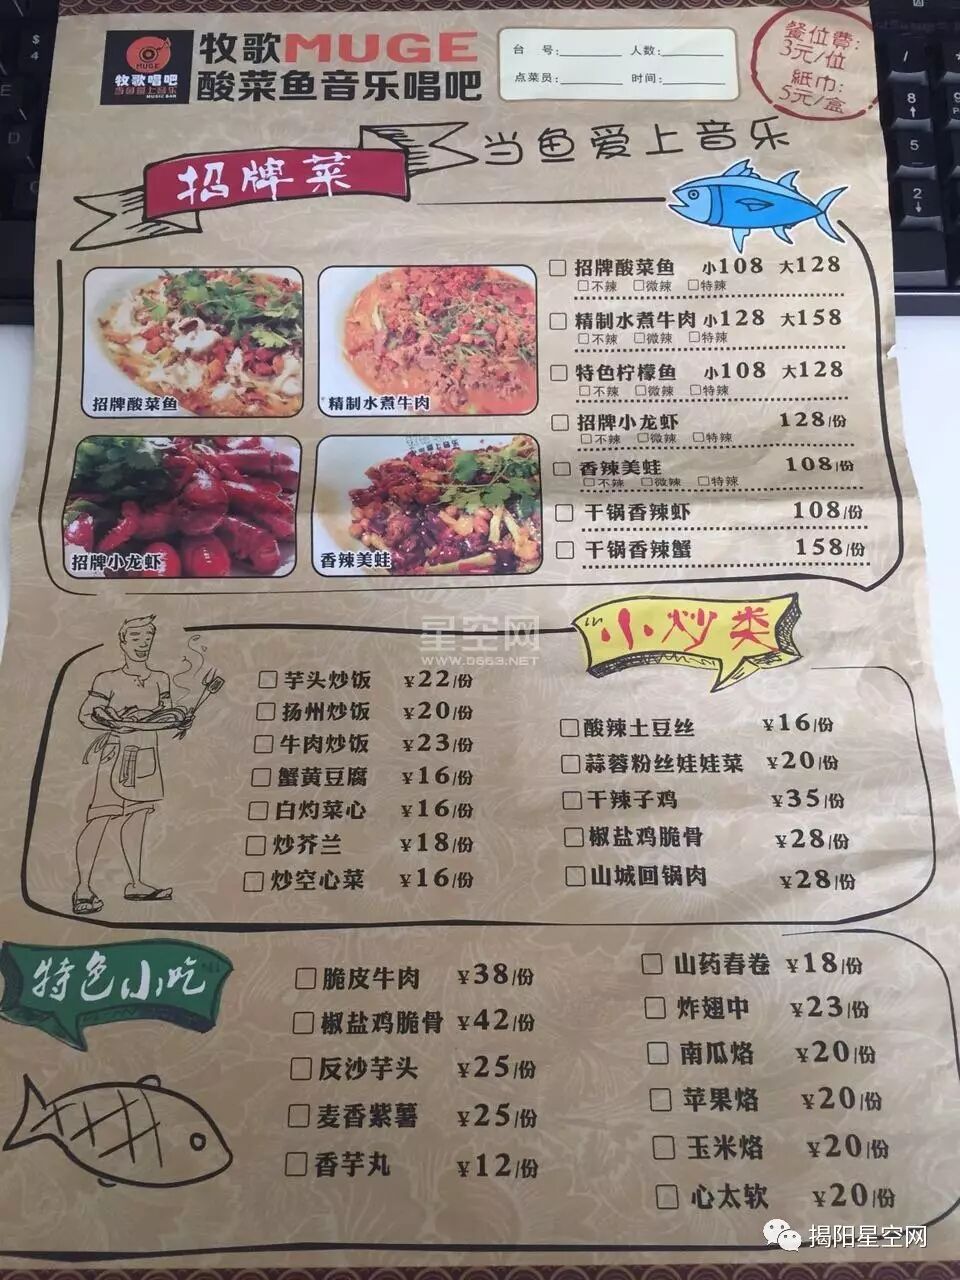 MUGE
牧歌唱吧
当鱼爱上音乐
MUSIC BAR
牧歌MUGE
酸菜鱼音乐唱吧
台 号: 人数:
点菜员: 时间:
餐位費:
3元/位
紙巾:
5元/盒
当鱼爱上音乐
招牌菜
招牌酸菜鱼
精制水煮牛肉
招牌小龙虾
香辣美蛙
招牌酸菜鱼 小108 大128
不辣 微辣 特辣
精制水煮牛肉 小128 大158
不辣 微辣 特辣
特色柠檬鱼 小108 大128
不辣 微辣 特辣
招牌小龙虾 128/份
不辣 微辣 特辣
香辣美蛙 108/份
不辣 微辣 特辣
干锅香辣虾 108/份
干锅香辣蟹 158/份
星空网
WWW.0663.NET
小炒类
芋头炒饭 ¥22/份
扬州炒饭 ¥20/份
牛肉炒饭 ¥23/份
蟹黄豆腐 ¥16/份
白灼菜心 ¥16/份
炒芥兰 ¥18/份
炒空心菜 ¥16/份
酸辣土豆丝 ¥16/份
蒜蓉粉丝娃娃菜 ¥20/份
干辣子鸡 ¥35/份
椒盐鸡脆骨 ¥28/份
山城回锅肉 ¥28/份
特色小吃
脆皮牛肉 ¥38/份
椒盐鸡脆骨 ¥42/份
反沙芋头 ¥25/份
麦香紫薯 ¥25/份
香芋丸 ¥12/份
山药春卷 ¥18/份
炸翅中 ¥23/份
南瓜烙 ¥20/份
苹果烙 ¥20/份
玉米烙 ¥20/份
心太软 ¥20/份
揭阳星空网